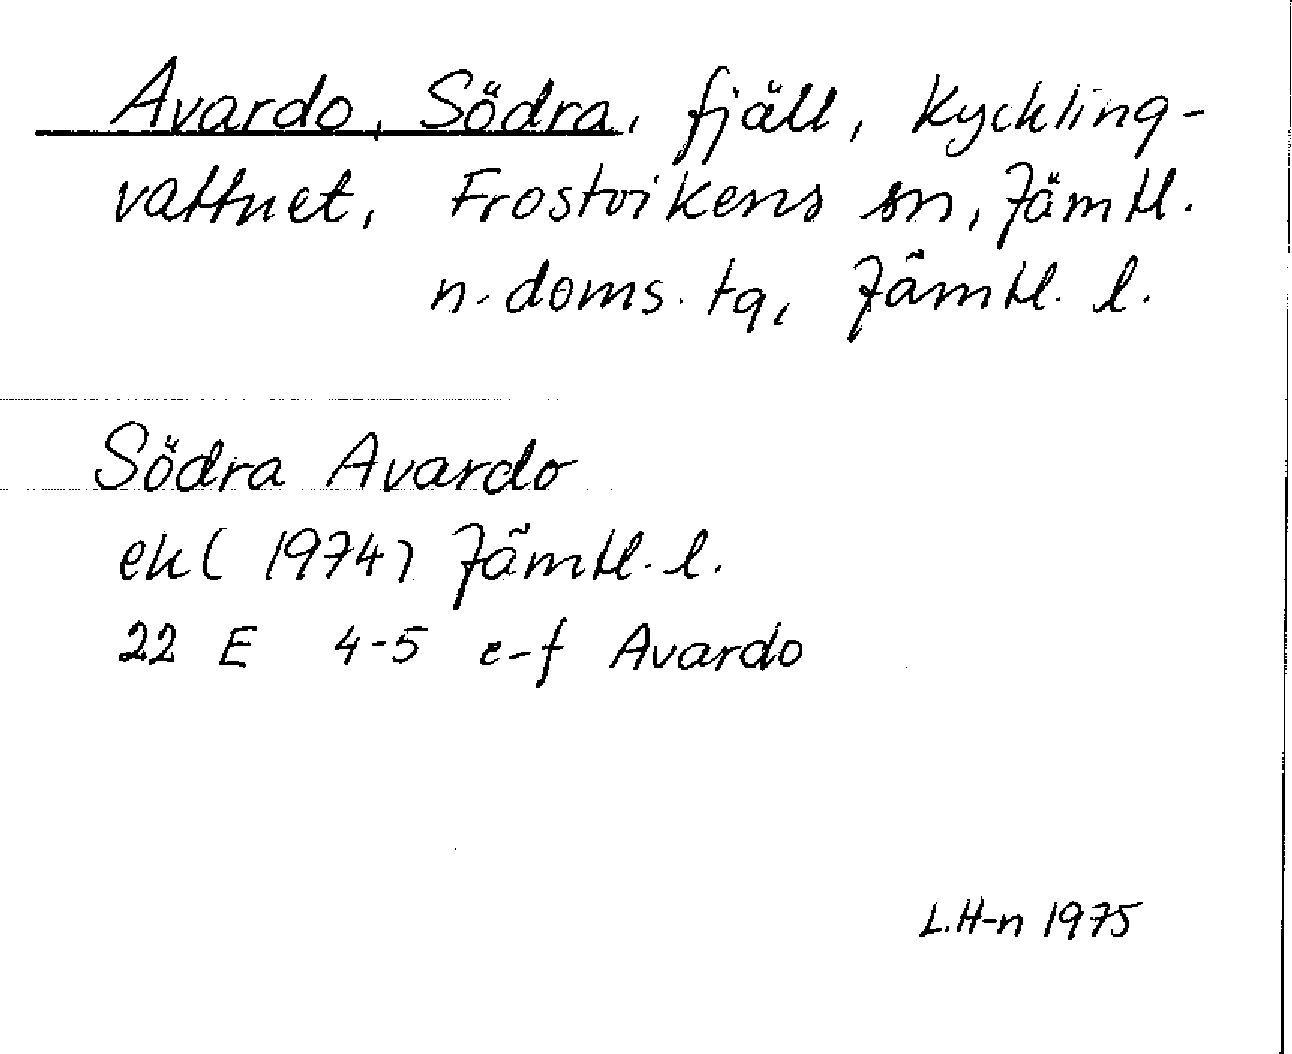 Avardo, Södra, fjäll, Kyckling-
vattnet, Frostvikens sn, Jämtl.
n. doms. tg, Jämtl. l.
Södra Avardo
ek ( 1974) Jämtl. l.
22 E 4-5 e-f Avardo
L.H-n 1975